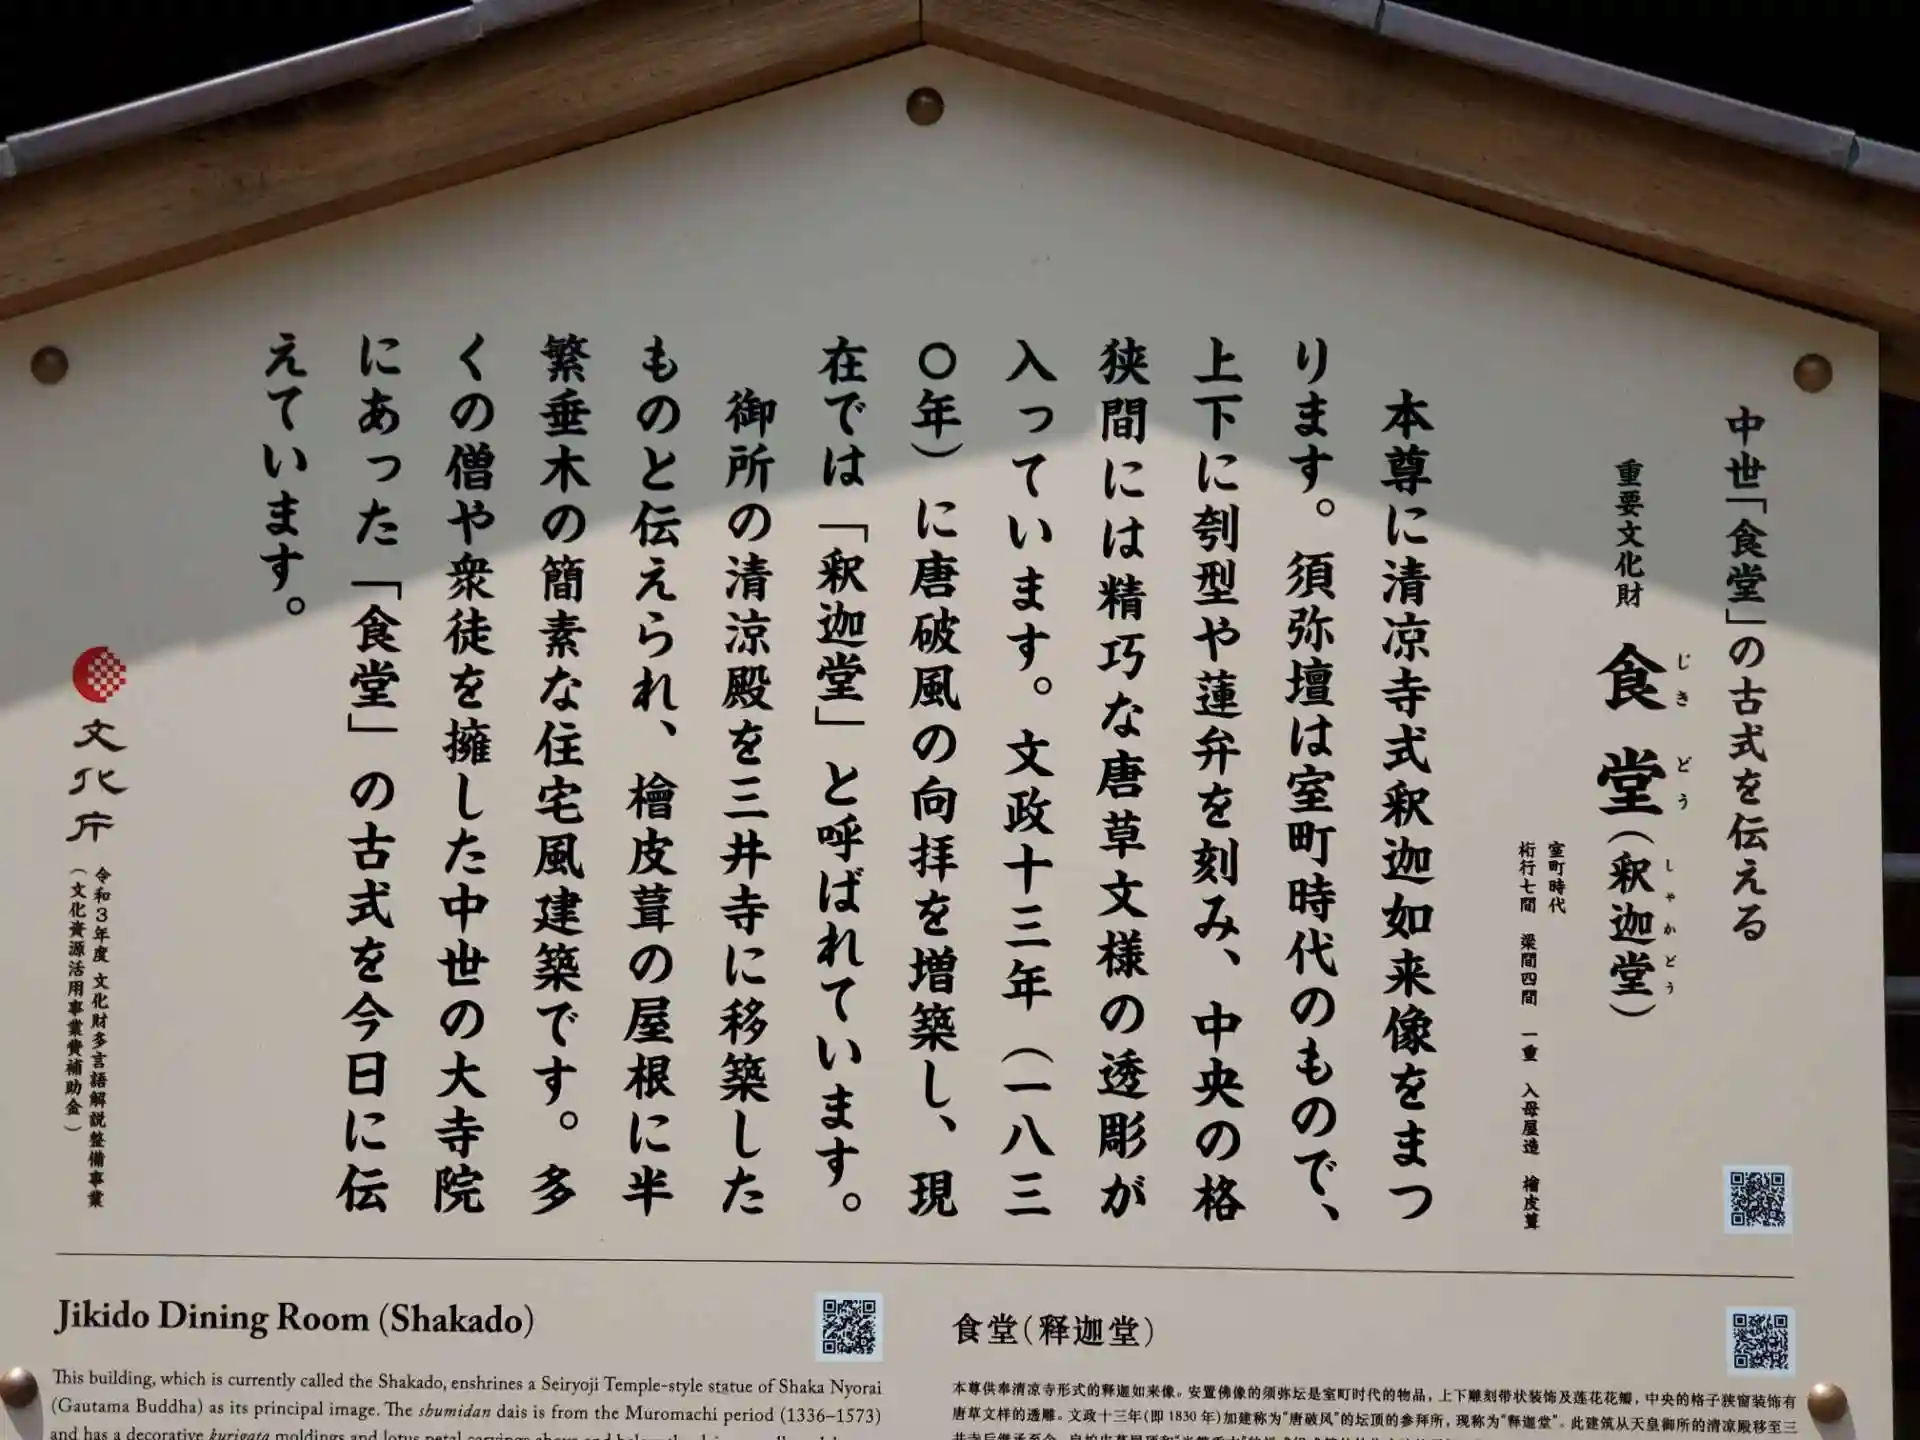 中世「食堂」の古式を伝える
重要文化財 食堂(釈迦堂)
じきどう
しゃかどう
室町時代
桁行七間 梁間四間 一重 入母屋造 檜皮葺
本尊に清凉寺式釈迦如来像をまつ
ります。須弥壇は室町時代のもので、
上下に刳型や蓮弁を刻み、中央の格
狭間には精巧な唐草文様の透彫が
入っています。文政十三年(一八三
〇年)に唐破風の向拝を増築し、現
在では「釈迦堂」と呼ばれています。
御所の清涼殿を三井寺に移築した
ものと伝えられ、檜皮葺の屋根に半
繁垂木の簡素な住宅風建築です。多
くの僧や衆徒を擁した中世の大寺院
にあった「食堂」の古式を今日に伝
えています。
文化庁
令和3年度 文化財多言語解説整備事業
(文化資源活用事業費補助金)
Jikido Dining Room (Shakado)
This building, which is currently called the Shakado, enshrines a Seiryoji Temple-style statue of Shaka Nyorai
(Gautama Buddha) as its principal image. The shumidan dais is from the Muromachi period (1336–1573)
and has a decorative kurigata moldings and lotus petal carvings above and below
食堂(释迦堂)
本尊供奉清凉寺形式的释迦如来像。安置佛像的须弥坛是室町时代的物品，上下雕刻带状装饰及莲花花瓣，中央的格子狭窗装饰有
唐草文样的透雕。文政十三年(即1830年)加建称为“唐破风”的坛顶的参拜所，现称为“释迦堂”。此建筑从天皇御所的清凉殿移至三